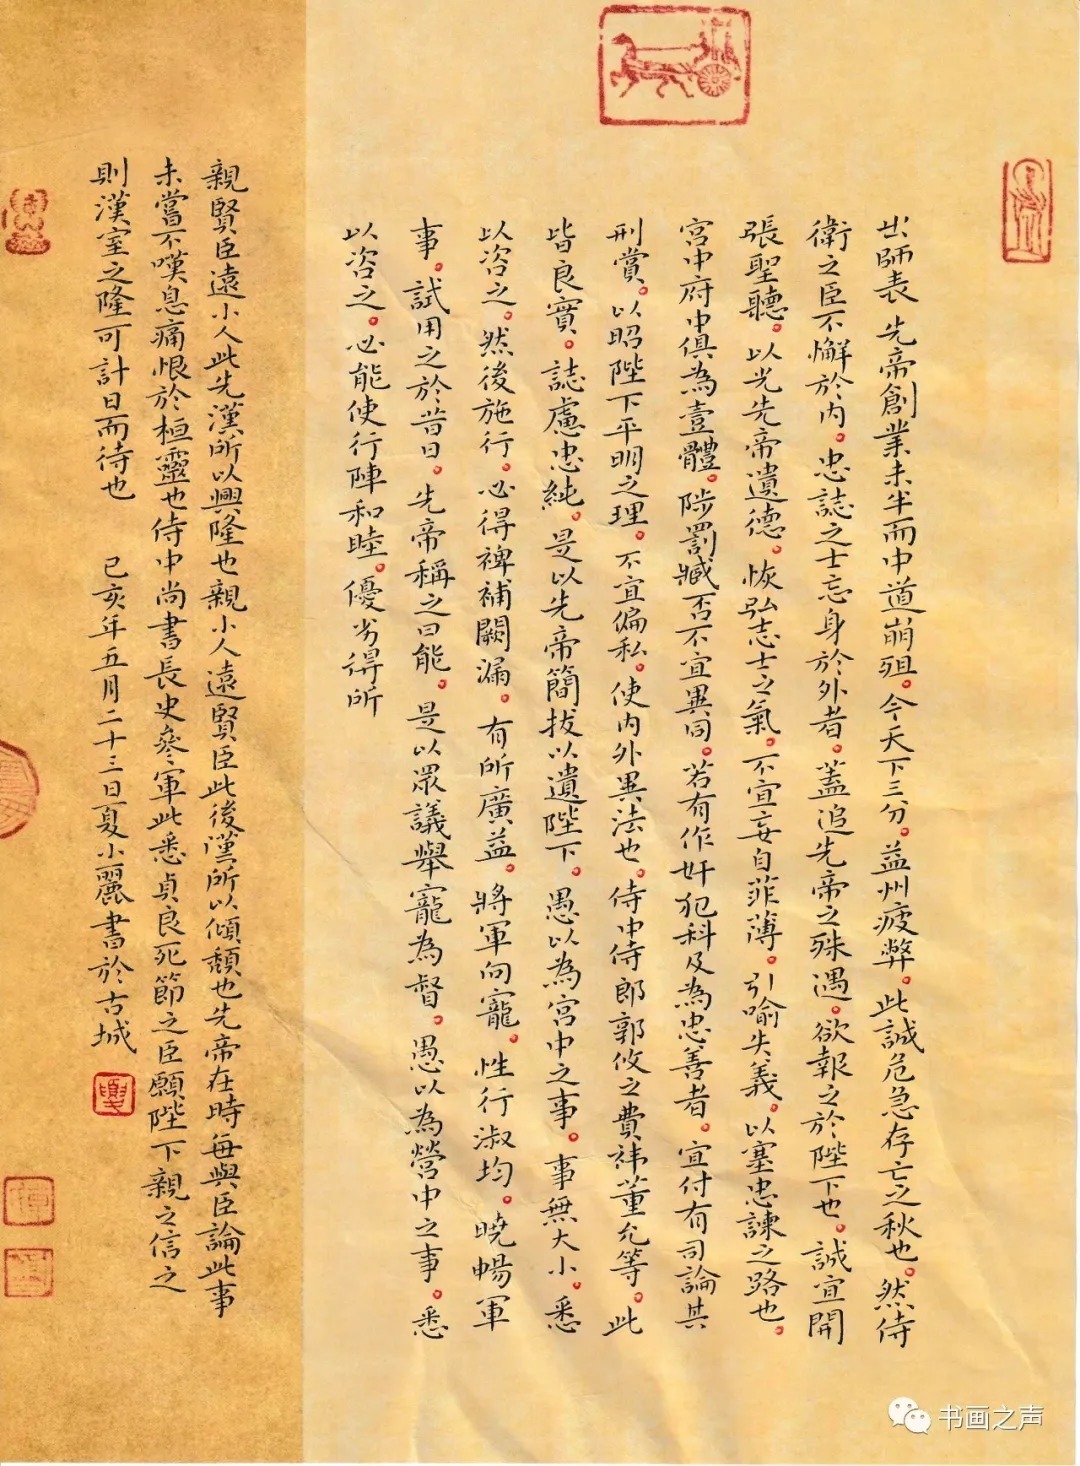 出師表 先帝創業未半而中道崩殂。今天下三分。益州疲弊。此誠危急存亡之秋也。然侍
衛之臣不懈於內。忠誌之士忘身於外者。蓋追先帝之殊遇。欲報之於陛下也。誠宜開
張聖聽。以光先帝遺德。恢弘志士之氣。不宜妄自菲薄。引喻失義。以塞忠諫之路也。
宮中府中俱為壹體。陟罰臧否不宜異同。若有作奸犯科及為忠善者。宜付有司論其
刑賞。以昭陛下平明之理。不宜偏私。使內外異法也。侍中侍郎郭攸之費祎董允等。此
皆良實。誌慮忠純。是以先帝簡拔以遺陛下。愚以為宮中之事。事無大小。悉
以咨之。然後施行。必得裨補闕漏。有所廣益。將軍向寵。性行淑均。曉暢軍
事。試用之於昔日。先帝稱之曰能。是以眾議舉寵為督。愚以為營中之事。悉
以咨之。必能使行陣和睦。優劣得所
親賢臣遠小人此先漢所以興隆也親小人遠賢臣此後漢所以傾頹也先帝在時每與臣論此事
未嘗不嘆息痛恨於桓靈也侍中尚書長史參軍此悉貞良死節之臣願陛下親之信之
則漢室之隆可計日而待也 己亥年五月二十三日夏小麗書於古城
书画之声